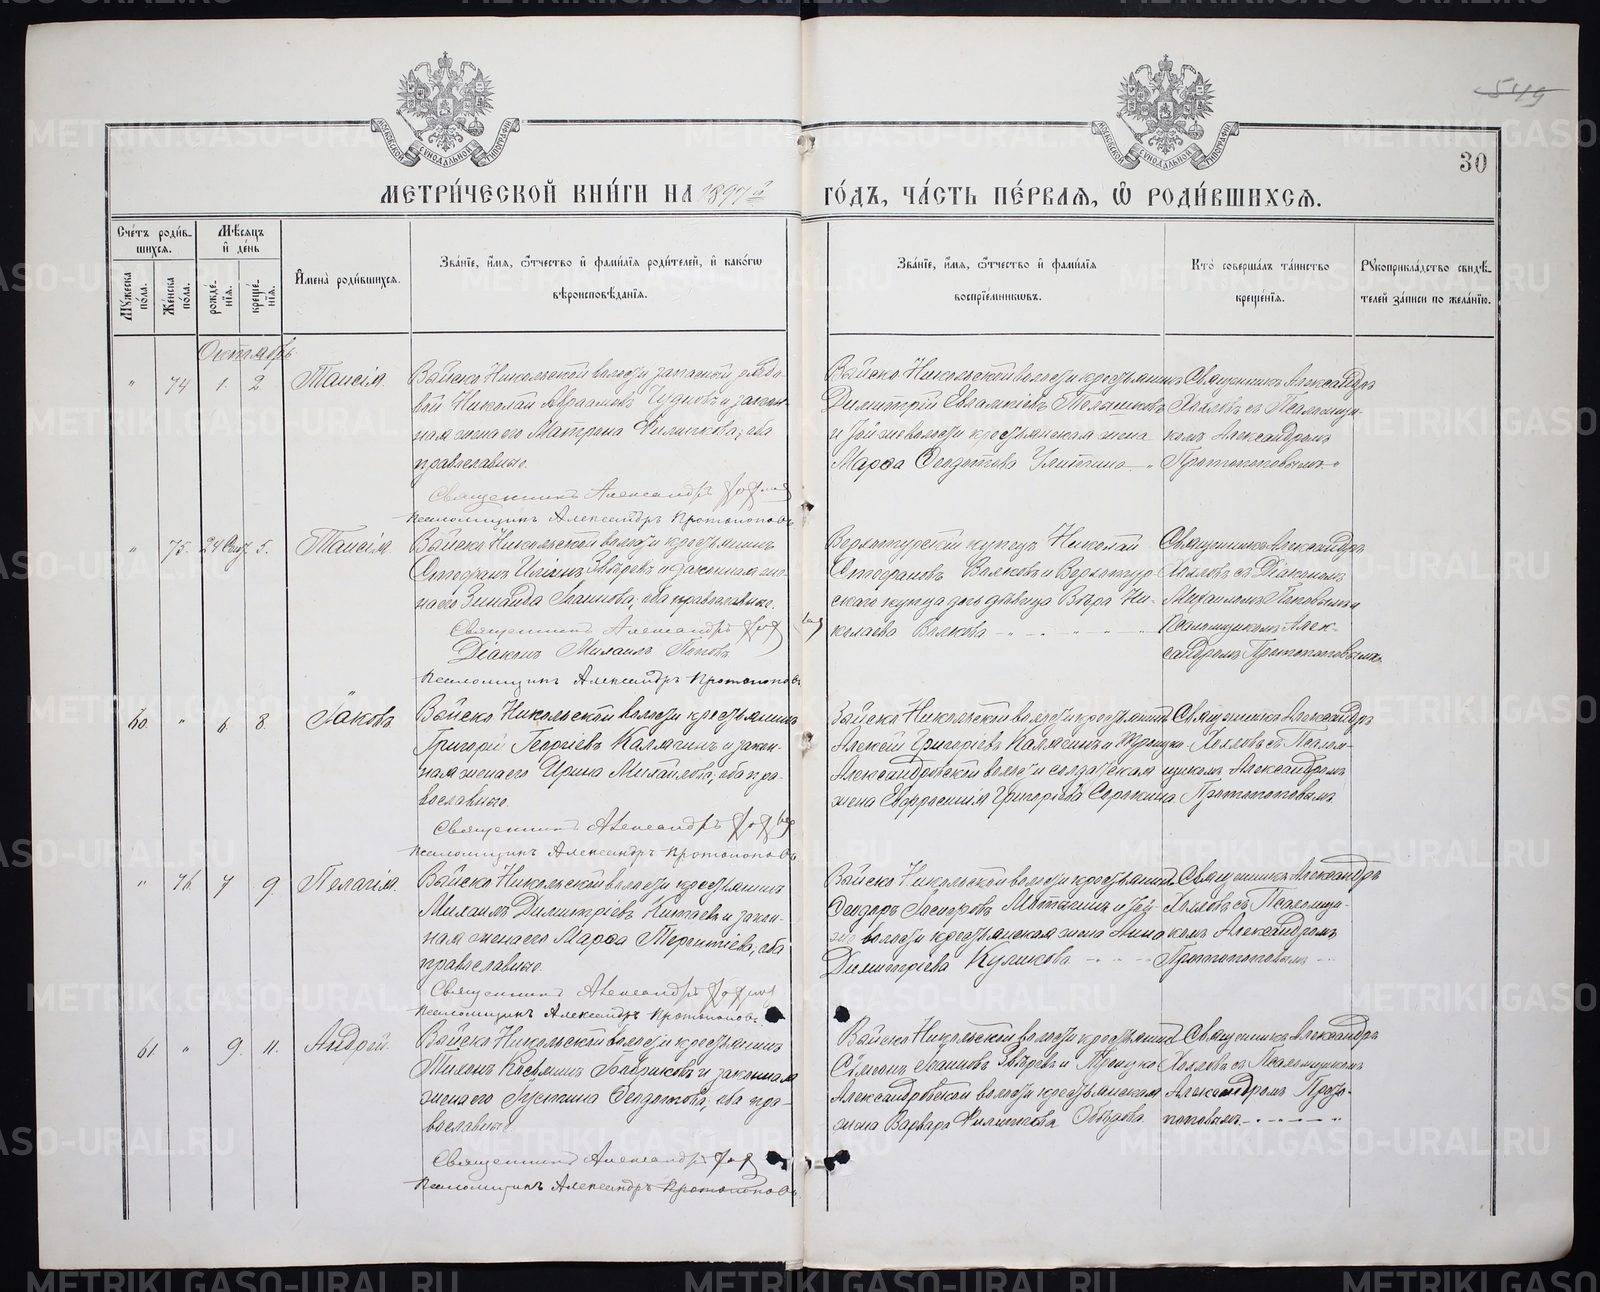 549
30
МОСКОВСКОЙ СѴНОДАЛЬНОЙ ТИПОГРАФІИ
МОСКОВСКОЙ СѴНОДАЛЬНОЙ ТИПОГРАФІИ
МЕТРИ́ЧЕСКОЙ КНИ́ГИ НА 1897й
ГО́ДЪ, ЧА́СТЬ ПЕ́РВАѦ, Ѽ РОДИ́ВШИХСѦ.
Сче́тъ роди́в-
шихсѧ.
Му́жеска
пола.
Же́нска
пола.
Мѣ́сѧцъ
и҆ де́нь
рожде́-
нїѧ.
креще́-
нїѧ.
И҆мена̀ роди́вшихсѧ.
Зва́нїе, и҆́мѧ, ѻ҆́тчество и҆ фами́лїѧ роди́телей, и҆ како́гѡ
вѣроисповѣ́данїѧ.
Зва́нїе, и҆́мѧ, ѻ҆́тчество и҆ фами́лїѧ
воспрїе́мникѡвъ.
Кто̀ соверша́лъ та́инство
креще́нїѧ.
Рꙋкоприкла́дство свидѣ́-
телей за́писи по жела́нїю.
Октябрь
" 74 1. 2 Таисія.
Байско Никольской волости запасной рядо-
вой Николай Авраамовъ Чудновъ и закон-
ная жена его Матрона Филиппова, оба
православные.
Священникъ Александръ
Псаломщикъ Александръ Протопоповъ
Байско Никольской волости крестьянинъ
Димитрій Евлампіевъ
и той же волости крестьянская жена
Марѳа Ѳедотова "
Священникъ Александръ
Хохловъ съ Псаломщи-
комъ Александромъ
Протопоповымъ "
" 75. 24 Сент. 5. Таисія.
Байско Никольской волости крестьянинъ
Стефанъ Звѣревъ и законная же-
на его Зинаида Іоаннова, оба православные.
Священникъ Александръ
Діаконъ Михаилъ Поповъ
Псаломщикъ Александръ Протопоповъ
Верхотурскій купецъ Николай
Стефановъ Волковъ и Верхотур-
скаго купца дочь дѣвица Вѣра Ни-
колаева Волкова
Священникъ Александръ
Хохловъ съ Діакономъ
Михаиломъ Поповымъ и
Псаломщикомъ Алек-
сандромъ Протопоповымъ
60. " 6. 8. Іаковъ
Байско Никольской волости крестьянинъ
Григорій Георгіевъ Калягинъ и закон-
ная жена его Ирина Михаилова, оба пра-
вославные.
Священникъ Александръ
Псаломщикъ Александръ Протопоповъ
Байско Никольской волости крестьянинъ
Алексій Григоріевъ Калягинъ и Троицко
Александровской волости солдатская
жена Евфросинія Григоріева Сорокина
Священникъ Александръ
Хохловъ съ Псалом-
щикомъ Александромъ
Протопоповымъ
" 76. 7 9. Пелагія.
Байско Никольской волости крестьянинъ
Михаилъ Димитріевъ Китаевъ и закон-
ная жена его Марѳа Терентіева, оба
православные.
Священникъ Александръ
Псаломщикъ Александръ Протопоповъ
Байско Никольской волости крестьянинъ
Ѳедоръ и той
же волости крестьянская жена Анна
Димитріева Куликова
Священникъ Александръ
Хохловъ съ Псаломщи-
комъ Александромъ
Протопоповымъ
61. " 9. 11. Андрей.
Байско Никольской волости крестьянинъ
Тихонъ Косьминъ и законная
жена его Іустина Ѳедотова, оба пра-
вославные
Священникъ Александръ
Псаломщикъ Александръ Протопоповъ
Байско Никольской волости крестьянинъ
Сѵмеонъ Іоанновъ Звѣревъ и Троицко
Александровской волости крестьянская
жена Варвара Филиппова Обвухова
Священникъ Александръ
Хохловъ съ Псаломщикомъ
Александромъ Прото-
поповымъ
METRIKI.GASO-URAL.RU